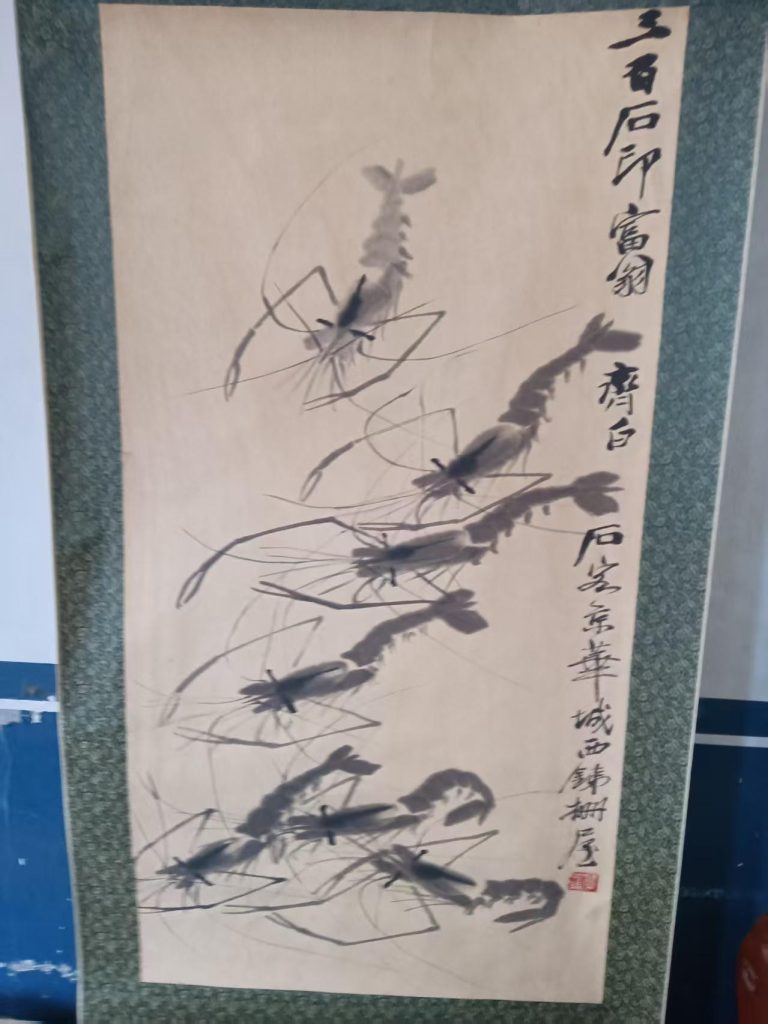 三百石印富翁 齊白 石客京華城西銕柵屋